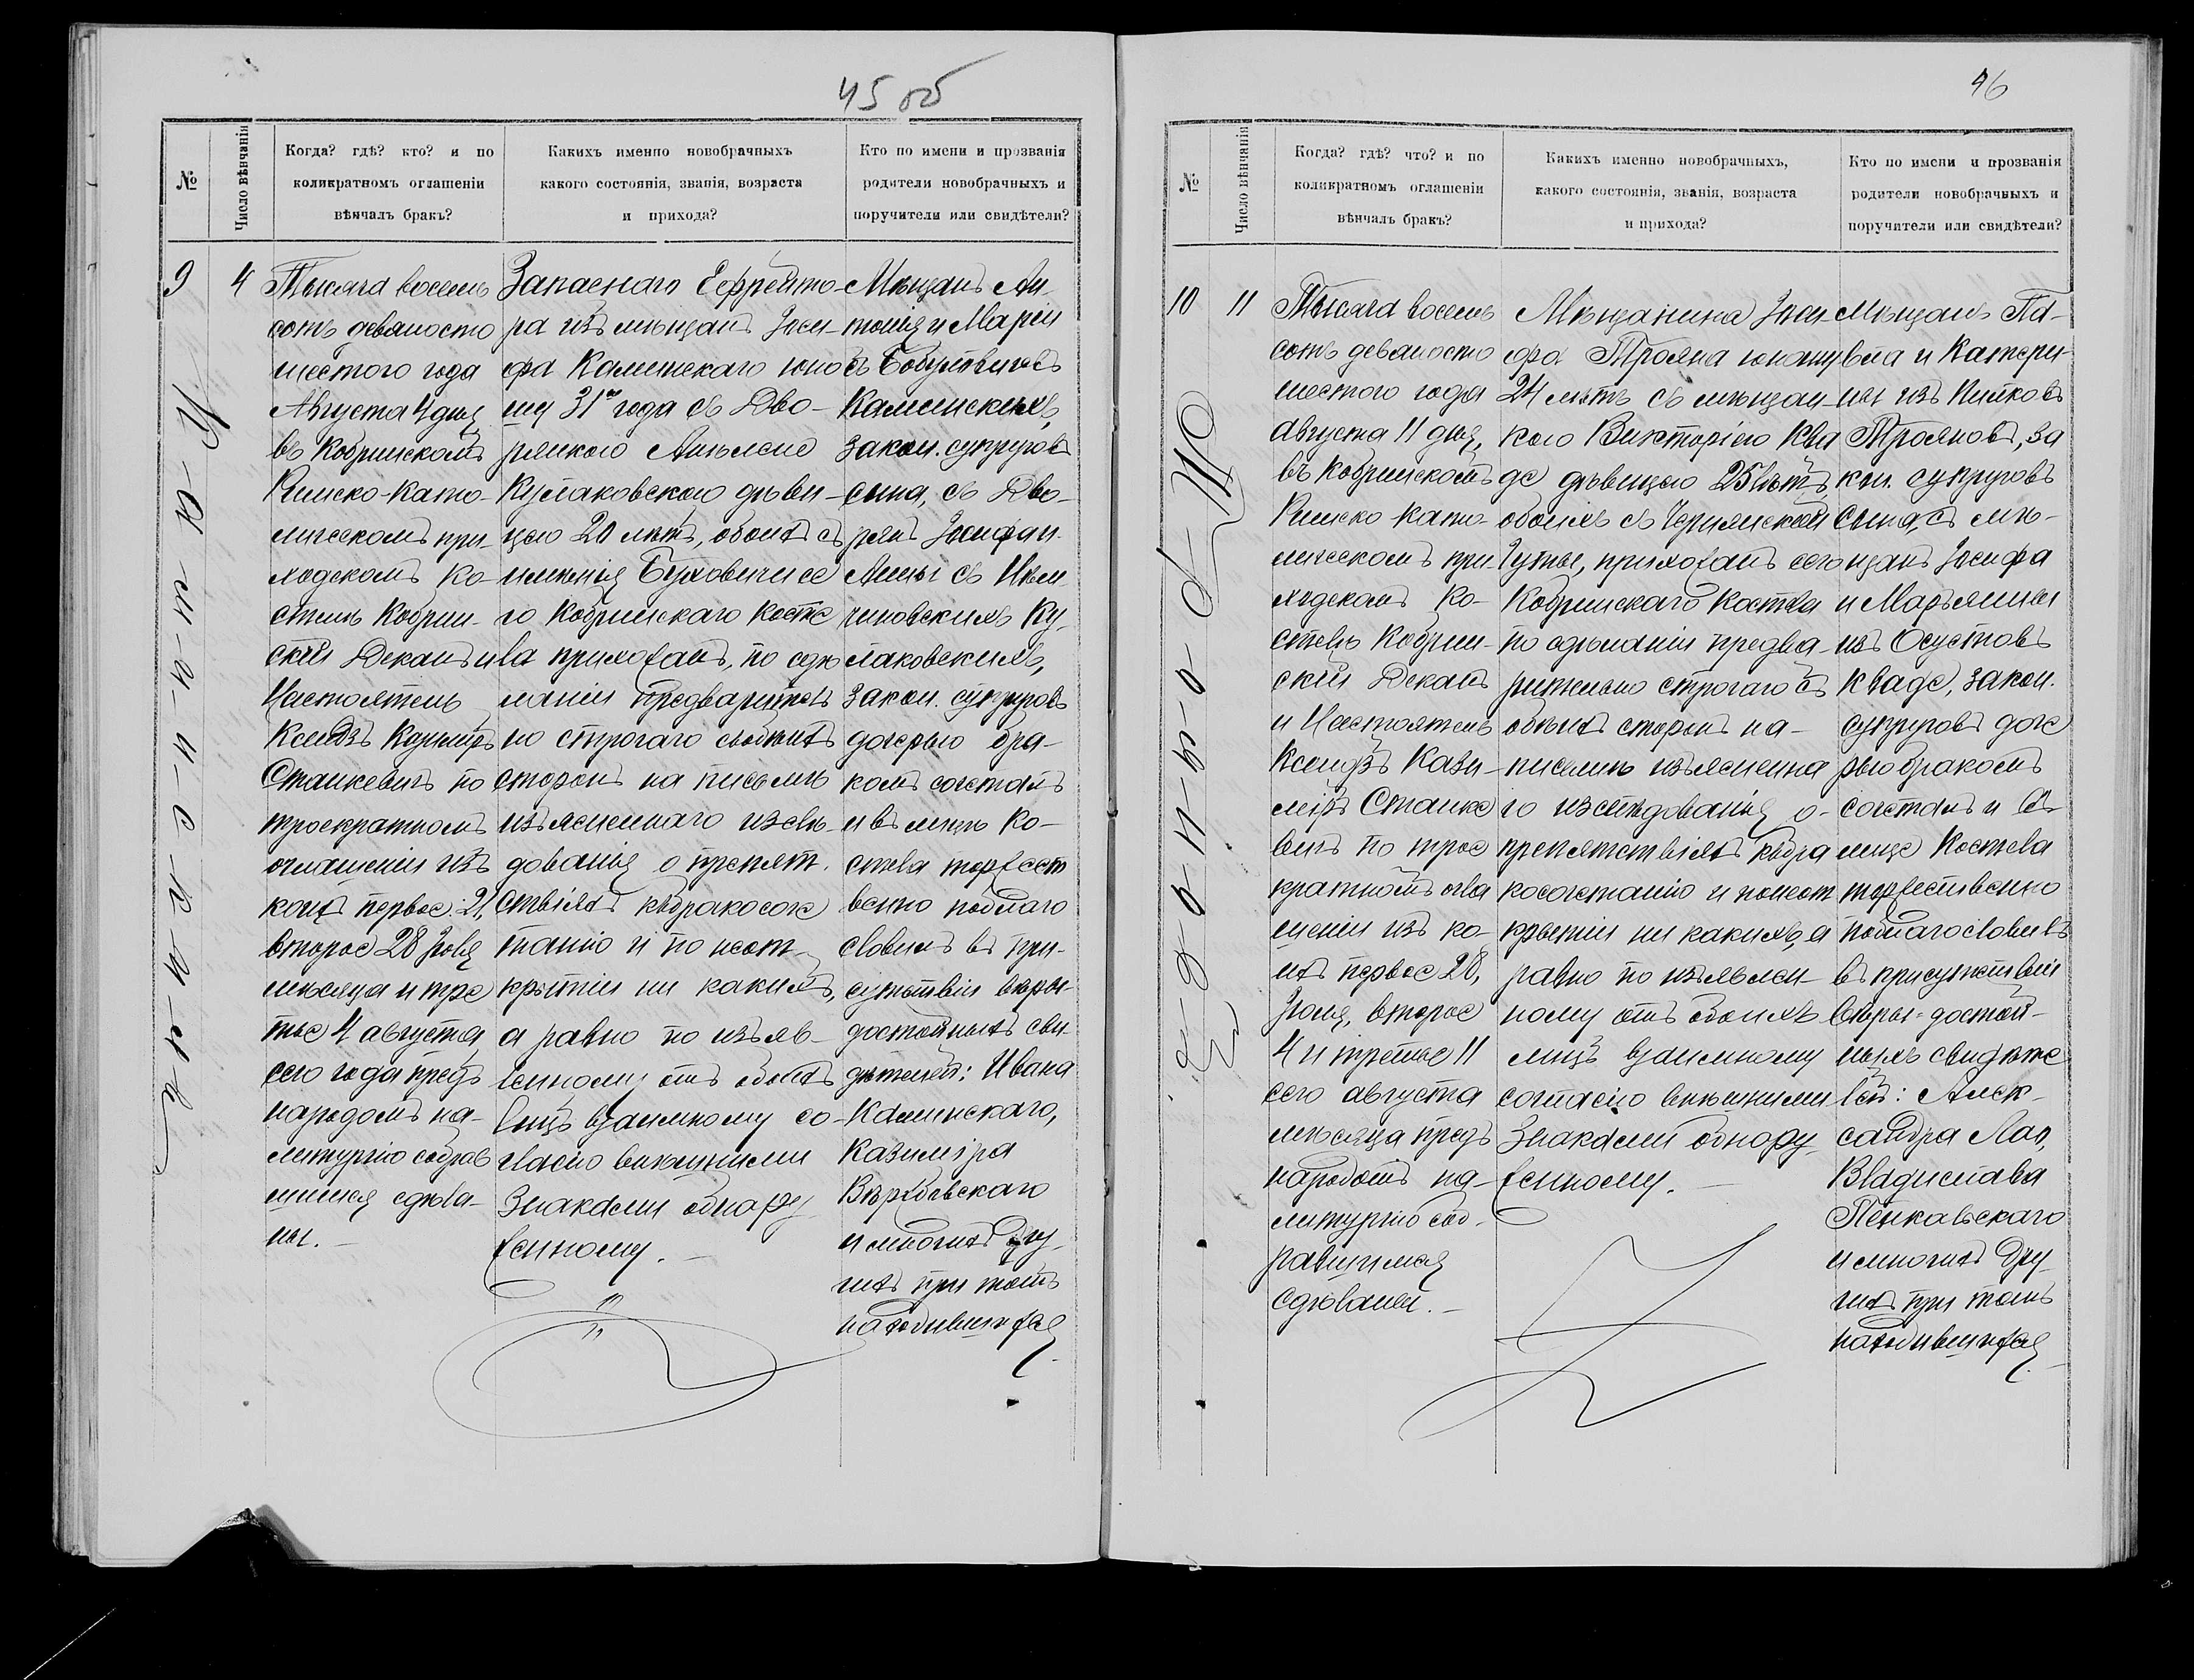 45 об
№
Число вѣнчанія
Когда? гдѣ? кто? и по
коликратномъ оглашеніи
вѣнчалъ бракъ?
Какихъ именно новобрачныхъ
какого состоянія, званія, возраста
и прихода?
Кто по имени и прозванія
родители новобрачныхъ и
поручители или свидѣтели?
9
4
Тысяча восемь
сотъ девяносто
шестого года
Августа 4 дня
въ Кобринскомъ
Римско-Като-
лическомъ при-
ходскомъ Ко-
стелѣ Кобрин-
скій Деканъ и
Настоятель
Ксендзъ Казиміръ
Станкевичъ по
троекратномъ
оглашеніи изъ
коихъ первое 21,
второе 28 Іюля
мѣсяца и тре
тье 4 августа
сего года предъ
народомъ на-
литургію собрав
шимся сдѣла-
ны.
Запаснаго Ефрейто-
ра изъ мѣщанъ Іоси-
фа Каминскаго юно
шу 31го года съ Дво-
рянкою Анѣлею
Кулаковскою дѣви-
цею 20 лѣтъ, обоихъ съ
имѣнія Буховичи се
го Кобринскаго Косте
ла прихожанъ, по сдѣ
ланіи предварител
но строгаго съ обѣихъ
сторонъ на письмѣ
изъясненнаго изслѣ-
дованія о препят.
ствіяхъ къ бракосоче
танію и по неот-
крытіи ни какихъ,
а равно по изъяв-
ленному отъ обоихъ
лицъ взаимному со-
гласію внѣшними
Знаками обнару
женному.
Мѣщанъ Ан
тонія и Маріи
съ Бобуловичъ
Каминскихъ,
закон. супруговъ
сына, съ Дво-
рянъ Іосифа и
Анны съ Нѣм
циновскихъ Ку-
лаковскихъ,
закон. супруговъ
дочерью бра-
комъ сочеталъ
и въ лицѣ Ко-
стела торжест
венно поблаго
словилъ въ при-
сутствіи вѣры-
достойныхъ сви
дѣтелей: Ивана
Каминскаго,
Казиміра
Вержбовскаго
и многихъ дру-
гихъ при томъ
находившихся
46
№
Число вѣнчанія
Когда? гдѣ? что? и по
коликратномъ оглашеніи
вѣнчалъ бракъ?
Какихъ именно новобрачныхъ,
какого состоянія, званія, возраста
и прихода?
Кто по имени и прозванія
родители новобрачныхъ и
поручители или свидѣтели?
10
11
Тысяча восемь
сотъ девяносто
шестого года
августа 11 дня,
въ Кобринскомъ
Римско Като-
лическомъ при-
ходскомъ Ко-
стелѣ Кобрин-
скій Деканъ
и Настоятель
Ксендзъ Кази-
міръ Станке
вичъ по трое
кратномъ огла
шеніи изъ ко-
ихъ первое 28,
Іюля, второе
4 и третье 11
сего августа
мѣсяца предъ
народомъ на-
литургію соб-
равшимся
сдѣланы.
Мѣщанина Іоси-
фа Трояна юношу
24 лѣтъ съ мѣщан-
кою Викторіею Ква
де дѣвицею 25 лѣтъ
обоихъ съ Чернянской
Гутые, прихожанъ сего
Кобринскаго Костела
по сдѣланіи предва-
рительно строгаго съ
обѣихъ сторонъ на-
писменно изъясненна
го изслѣдованія о-
препятствіяхъ къ бра
косочетанію и по неот
крытіи ни какихъ, а
равно по изъявлен-
ному отъ обоихъ
лицъ взаимному
согласію внѣшними
Знаками обнару
женному.
Мѣщанъ Па-
вла и Катери-
ны изъ Пилковъ
Трояновъ, за
кон. супруговъ
сына, съ мѣ-
щанъ Іосифа
и Марьянны
изъ Осустовъ
Кваде, закон.
супруговъ доче
рью бракомъ
сочеталъ и въ
лице Костела
торжественно
поблагословилъ
въ присутствіи
вѣры-достой-
ныхъ свидѣте
лей: Алек-
сандра Лап,
Владислава
Пенкавскаго
и многихъ дру-
гихъ при томъ
находившихся